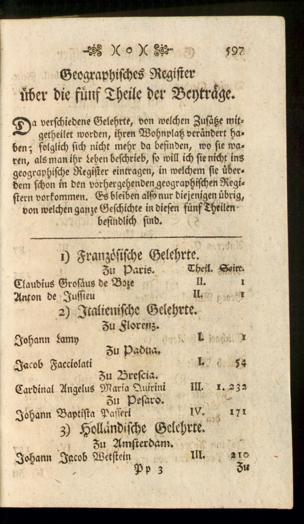 )( o )( 597
Geographisches Register
über die fünf Theile der Beyträge.
Da verschiedene Gelehrte, von welchen Zusätze mit-
getheilet worden, ihren Wohnplatz verändert ha-
ben; folglich sich nicht mehr da befinden, wo sie wa-
ren, als man ihr Leben beschrieb, so will ich sie nicht ins
geographische Register eintragen, in welchem sie über-
dem schon in den vorhergehenden geographischen Regi-
stern vorkommen. Es bleiben also nur diejenigen übrig,
von welchen ganze Geschichte in diesen fünf Theilen
befindlich sind.
1) Französische Gelehrte.
Zu Paris. Theil. Seite.
Claudius Grosäus de Boze II. 1
Anton de Jussieu II. 1
2) Italienische Gelehrte.
Zu Florenz.
Johann Lamy I. 1
Zu Padua.
Jacob Facciolati I. 54
Zu Brescia.
Cardinal Angelus Maria Quirini III. 1. 232
Zu Pesaro.
Johann Baptista Passeri IV. 171
3) Holländische Gelehrte.
Zu Amsterdam.
Johann Jacob Wetstein III. 210
Pp 3 Zu